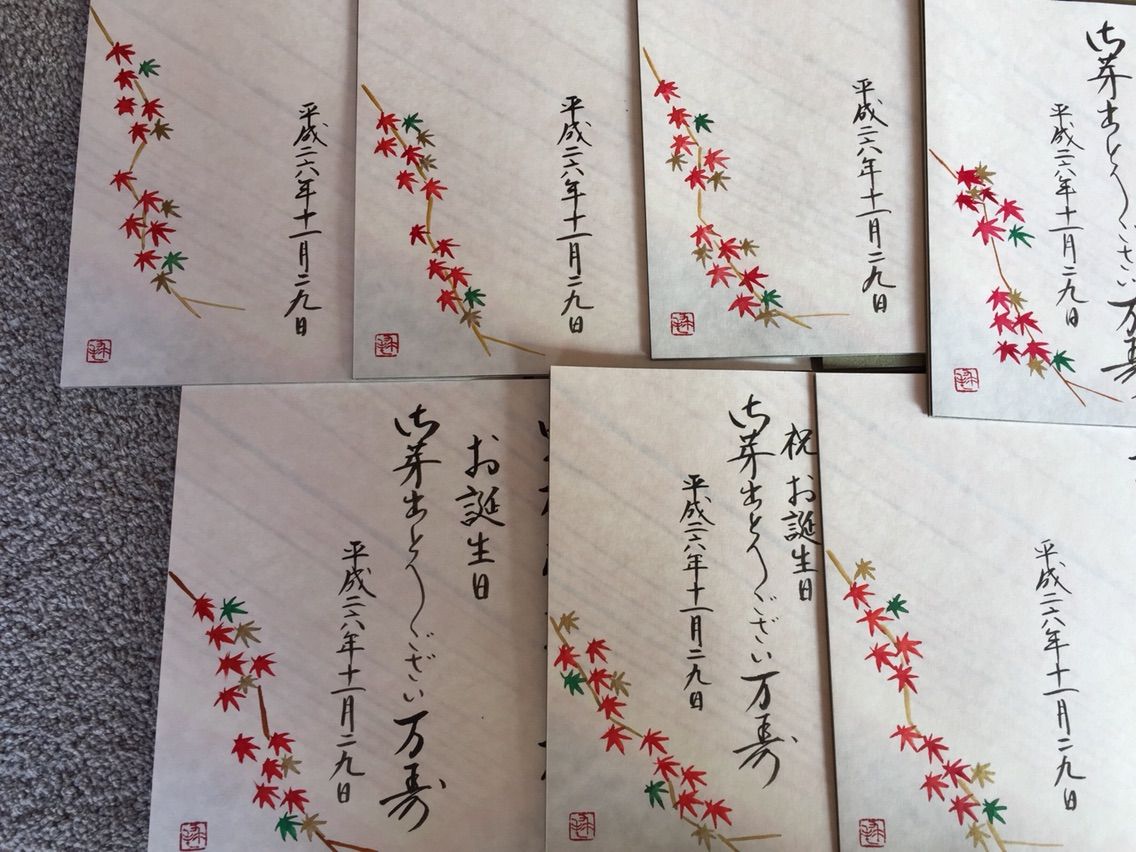 平成二六年十一月二九日
平成二六年十一月二九日
平成二六年十一月二九日
御芽出とうござい万寿
平成二六年十一月二九日
お誕生日
御芽出とうござい万寿
平成二六年十一月二九日
祝お誕生日
御芽出とうござい万寿
平成二六年十一月二九日
平成二六年十一月二九日